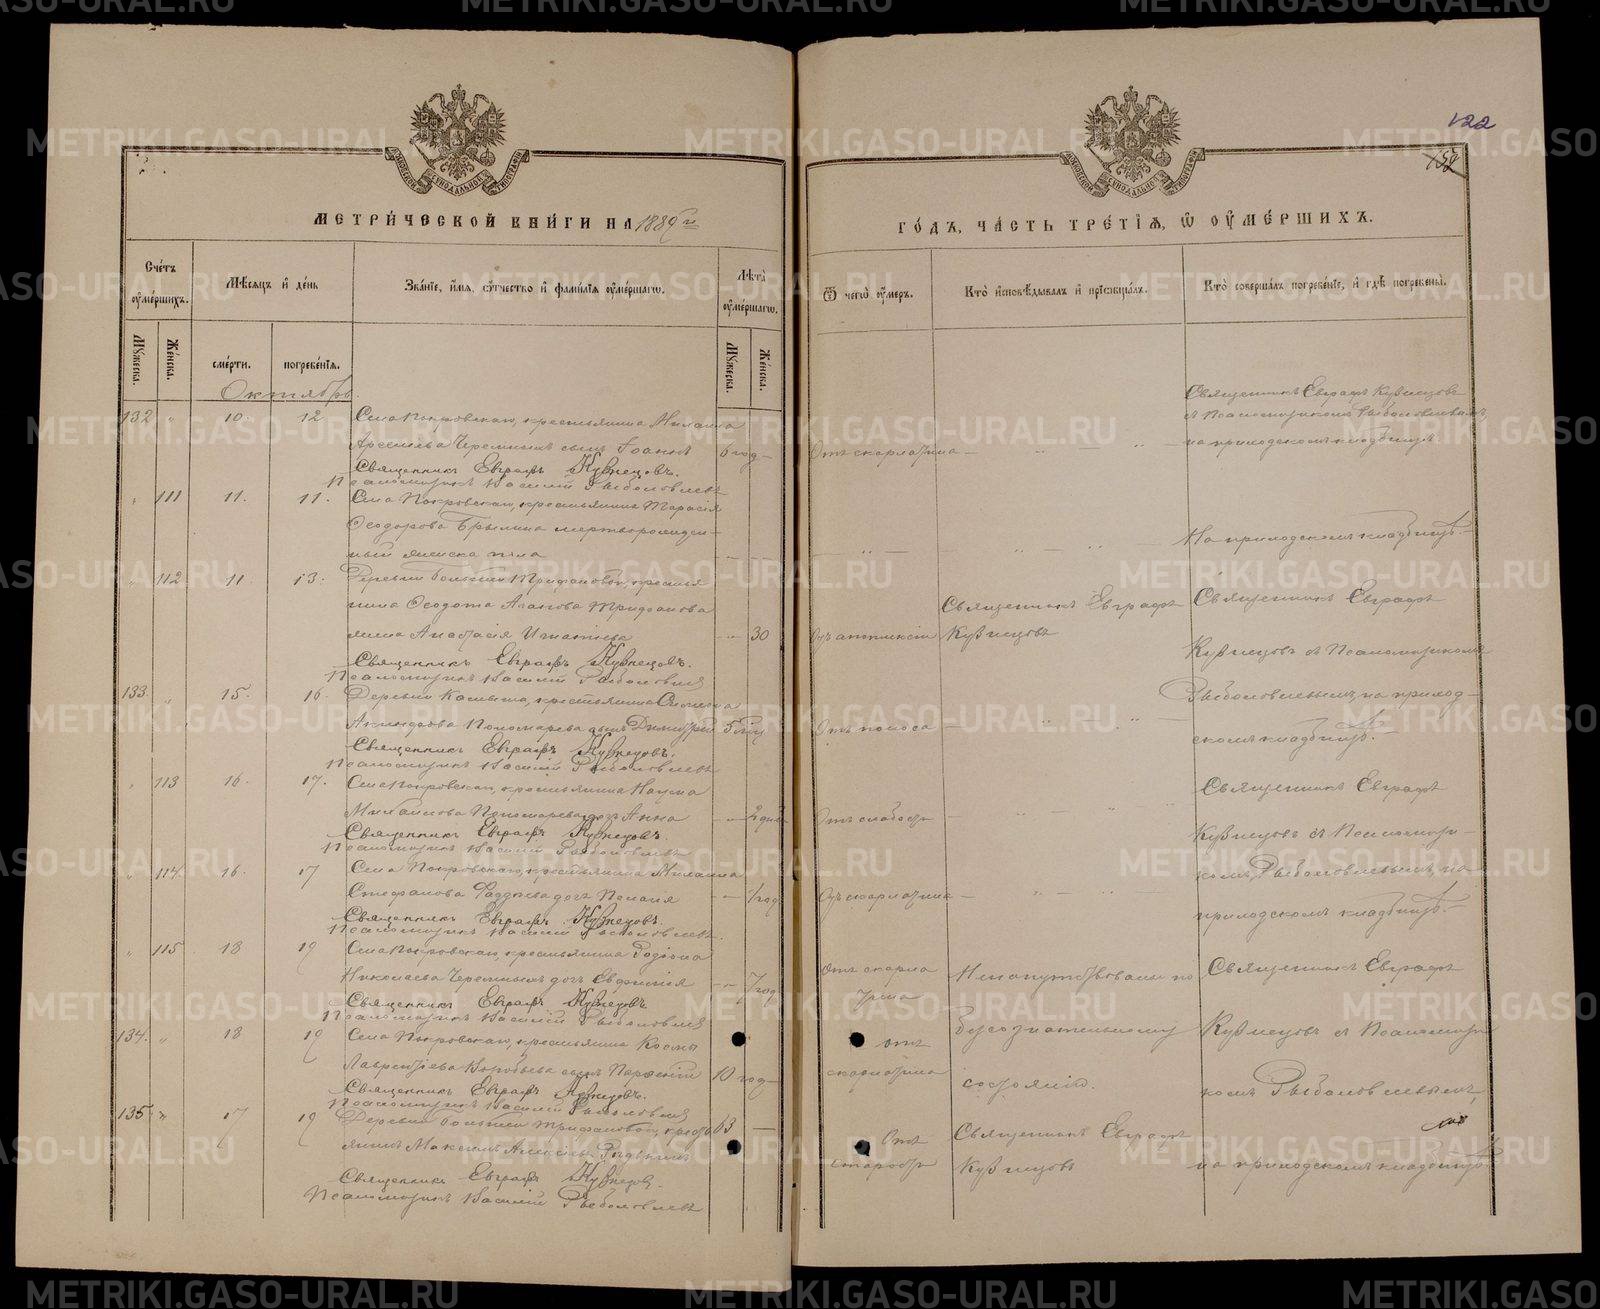 122
152
МЕТРИЧЕСКОЙ КНИГИ НА 1889 й
ГОДЪ, ЧАСТЬ ТРЕТІЯ, Ѽ ОУМЕРШИХЪ.
Счетъ оумершихъ.
Мѣсяцъ и день
Званіе, имя, отчество и фамилія оумершагѡ.
Лѣта оумершагѡ.
Ѿ чегѡ оумеръ.
Кто исповѣдывалъ и пріобщалъ.
Кто совершалъ погребеніе, и гдѣ погребены.
Мужеска.
Женска.
смерти.
погребенія.
Мужеска.
Женска.
Октябрь.
132 " 10. 12
Села Покровскаго, крестьянина
Арсеніева Черемныхъ сынъ Іоаннъ 6 год
Отъ скарлатина
Священникъ Евграфъ Кузнецовъ
съ Псаломщикомъ Рыболовлевымъ
на приходскомъ кладбищѣ.
Священникъ Евграфъ Кузнецовъ.
Псаломщикъ Василій Рыболовлевъ
" 111 11. 11.
Села Покровскаго, крестьянина Тарасія
Ѳеодорова Брылина мертворожден-
ный женска пола
На приходскомъ кладбищѣ.
" 112 11. 13.
Деревни Большой Трифановой, крестья
нина Ѳеодота Трифанова
жена Анастасія Игнатіева 30
Священникъ Евграфъ
Кузнецовъ
Священникъ Евграфъ
Кузнецовъ съ Псаломщикомъ
Священникъ Евграфъ Кузнецовъ.
Псаломщикъ Василій Рыболовлевъ
133 " 15. 16.
Деревни крестьянина
Пономарева сынъ Димитрій 5
Отъ поноса
Рыболовлевымъ, на приход-
скомъ кладбищѣ.
Священникъ Евграфъ Кузнецовъ.
Псаломщикъ Василій Рыболовлевъ
" 113 16. 17.
Села Покровскаго, крестьянина Наума
Михаилова Пономарева дочь Анна 2 дней
Отъ слабости
Священникъ Евграфъ
Кузнецовъ съ Псаломщи-
комъ Рыболовлевымъ, на
Священникъ Евграфъ Кузнецовъ.
Псаломщикъ Василій Рыболовлевъ
" 114. 16. 17
Села Покровскаго, крестьянина
Стефанова дочь Пелагія 1 год
Отъ скарлатина
приходскомъ кладбищѣ.
Священникъ Евграфъ Кузнецовъ.
Псаломщикъ Василій Рыболовлевъ.
" 115 18 19
Села Покровскаго, крестьянина Родіона
Николаева Черемныхъ дочь Евфимія 7 год
Отъ скарла
тина
Священникъ Евграфъ
Священникъ Евграфъ Кузнецовъ
Псаломщикъ Василій Рыболовлевъ
134. " 18 19
Села Покровскаго, крестьянина Космы
Лаврентіева Воробьева сынъ 10 год
отъ
скарлатина
состоянію.
Кузнецовъ съ Псаломщи
комъ Рыболовлевымъ,
Священникъ Евграфъ Кузнецовъ.
Псаломщикъ Василій Рыболовлевъ
135 " 17 19
Деревни Большой Трифановой, кресть
янинъ Максимъ 63
Отъ
старости
Священникъ Евграфъ
Кузнецовъ
на приходскомъ кладбищѣ.
Священникъ Евграфъ Кузнецовъ.
Псаломщикъ Василій Рыболовлевъ
METRIKI.GASO-URAL.RU